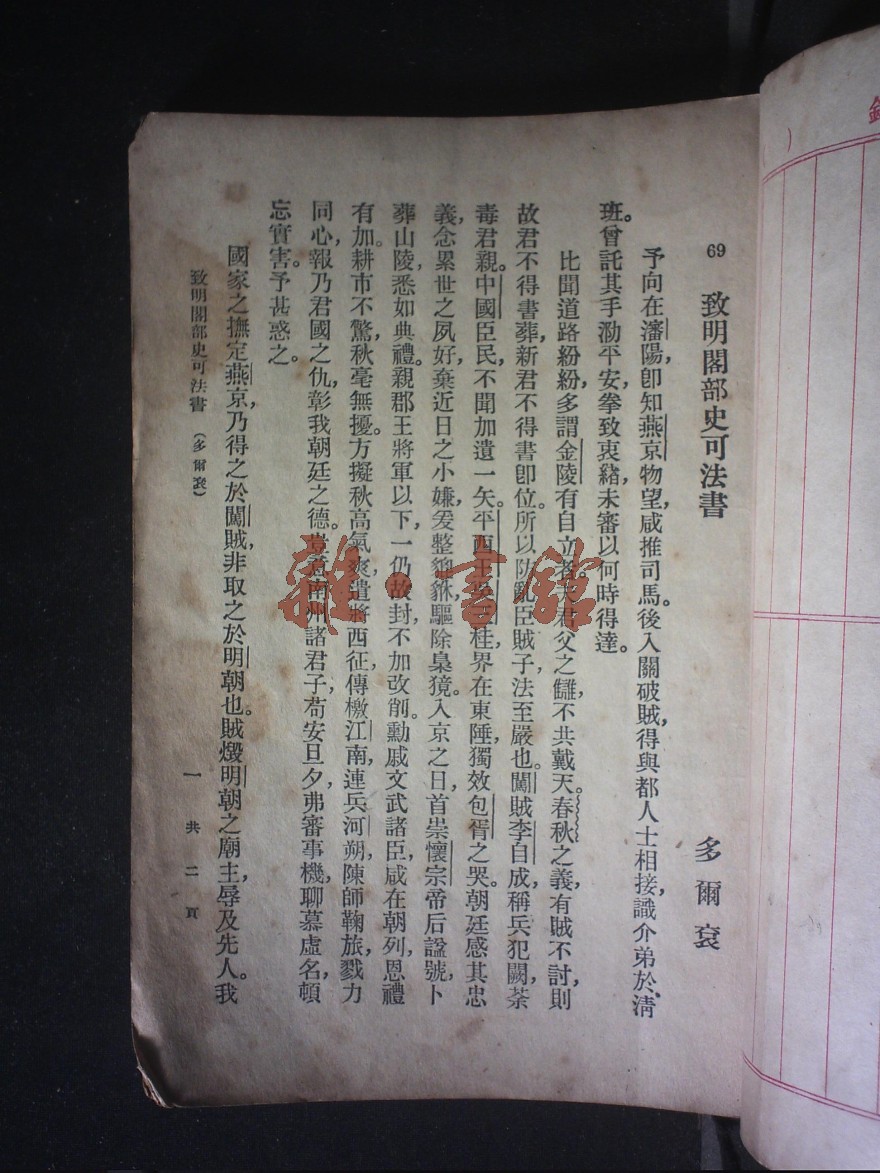 69 致明閣部史可法書 多爾袞
予向在瀋陽，卽知燕京物望，咸推司馬。後入關破賊，得與都人士相接，識介弟於清
班。曾託其手泐平安，拳致衷緒，未審以何時得達。
比聞道路紛紛，多謂金陵有自立者。夫君父之讎，不共戴天。春秋之義，有賊不討，則
故君不得書葬，新君不得書卽位。所以防亂臣賊子，法至嚴也。闖賊李自成，稱兵犯闕，荼
毒君親。中國臣民，不聞加遺一矢。平西王吳三桂，界在東陲，獨效包胥之哭。朝廷感其忠
義，念累世之夙好，棄近日之小嫌，爰整貔貅，驅除梟獍。入京之日，首崇懷宗帝后諡號，卜
葬山陵，悉如典禮。親郡王將軍以下，一仍故封，不加改削。勳戚文武諸臣，咸在朝列，恩禮
有加。耕市不驚，秋毫無擾。方擬秋高氣爽，遣將西征，傳檄江南，連兵河朔，陳師鞠旅，戮力
同心，報乃君國之仇，彰我朝廷之德。豈意南州諸君子，苟安旦夕，弗審事機，聊慕虛名，頓
忘實害。予甚惑之。
國家之撫定燕京，乃得之於闖賊，非取之於明朝也。賊燬明朝之廟主，辱及先人。我
致明閣部史可法書 （多爾袞） 一 共二頁
雜·書館